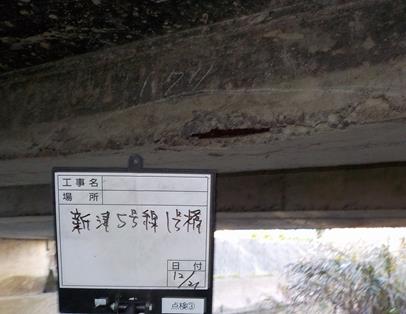 工事名
場所
新津5号線1号橋
日付
12/21
点検③